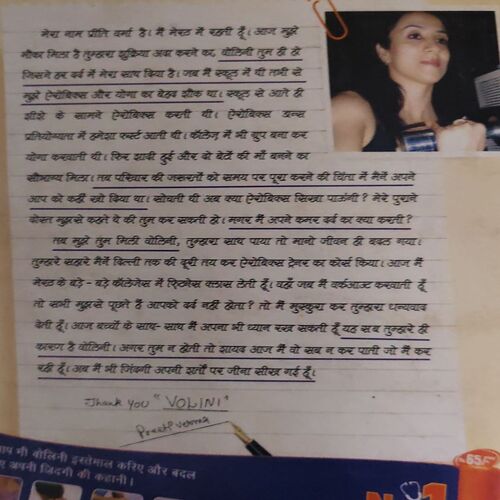 मेरा नाम प्रीति वर्मा है। मैं मेरठ में रहती हूँ। आज मुझे
मौका मिला है तुम्हारा शुक्रिया अदा करने का, वोलिनी तुम ही हो
जिसने हर दर्द में मेरा साथ दिया है। जब मैं स्कूल में थी तभी से
मुझे ऐरोबिक्स और योगा का बेहद शौक था। स्कूल से आते ही
शीशे के सामने ऐरोबिक्स करती थी। ऐरोबिक्स डान्स
प्रतियोग्यता में हमेशा फर्स्ट आती थी। कॉलेज़ में भी ग्रुप बना कर
योगा करवाती थी। फिर शादी हुई और दो बेटों की माँ बनने का
सौभाग्य मिला। तब परिवार की जरूरतों को समय पर पूरा करने की चिंता में मैनें अपने
आप को कहीं खो दिया था। सोचती थी अब क्या ऐरोबिक्स सिखा पाऊंगी? मेरे पुराने
दोस्त मुझसे कहते थे की तुम कर सकती हो। मगर मैं अपने कमर दर्द का क्या करती?
तब मुझे तुम मिली वोलिनी, तुम्हारा साथ पाया तो मानो जीवन ही बदल गया।
तुम्हारे सहारे मैनें दिल्ली तक की दूरी तय कर ऐरोबिक्स ट्रेनर का कोर्स किया। आज मैं
मेरठ के बड़े - बड़े कॉलेजेस में फिटनेस क्लास लेती हूँ। वहाँ जब मैं वर्कआऊट करवाती हूँ
तो सभी मुझसे पूछते है आपको दर्द नहीं होता? तो मैं मुस्कुरा कर तुम्हारा धन्यवाद
देती हूँ। आज बच्चों के साथ- साथ मैं अपना भी ध्यान रख सकती हूँ यह सब तुम्हारे ही
कारण है वोलिनी। अगर तुम न होती तो शायद आज मैं वो सब न कर पाती जो मैं कर
रही हूँ। अब मैं भी जिंदगी अपनी शर्तों पर जीना सीख गई हूँ।
Thank You "VOLINI"
Preeti Verma
आप भी वोलिनी इस्तेमाल करिए और बदल
अपनी जिंदगी की कहानी।
No 1